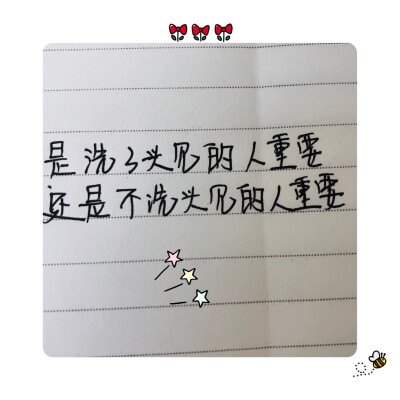 是洗了头见的人重要
还是不洗头见的人重要